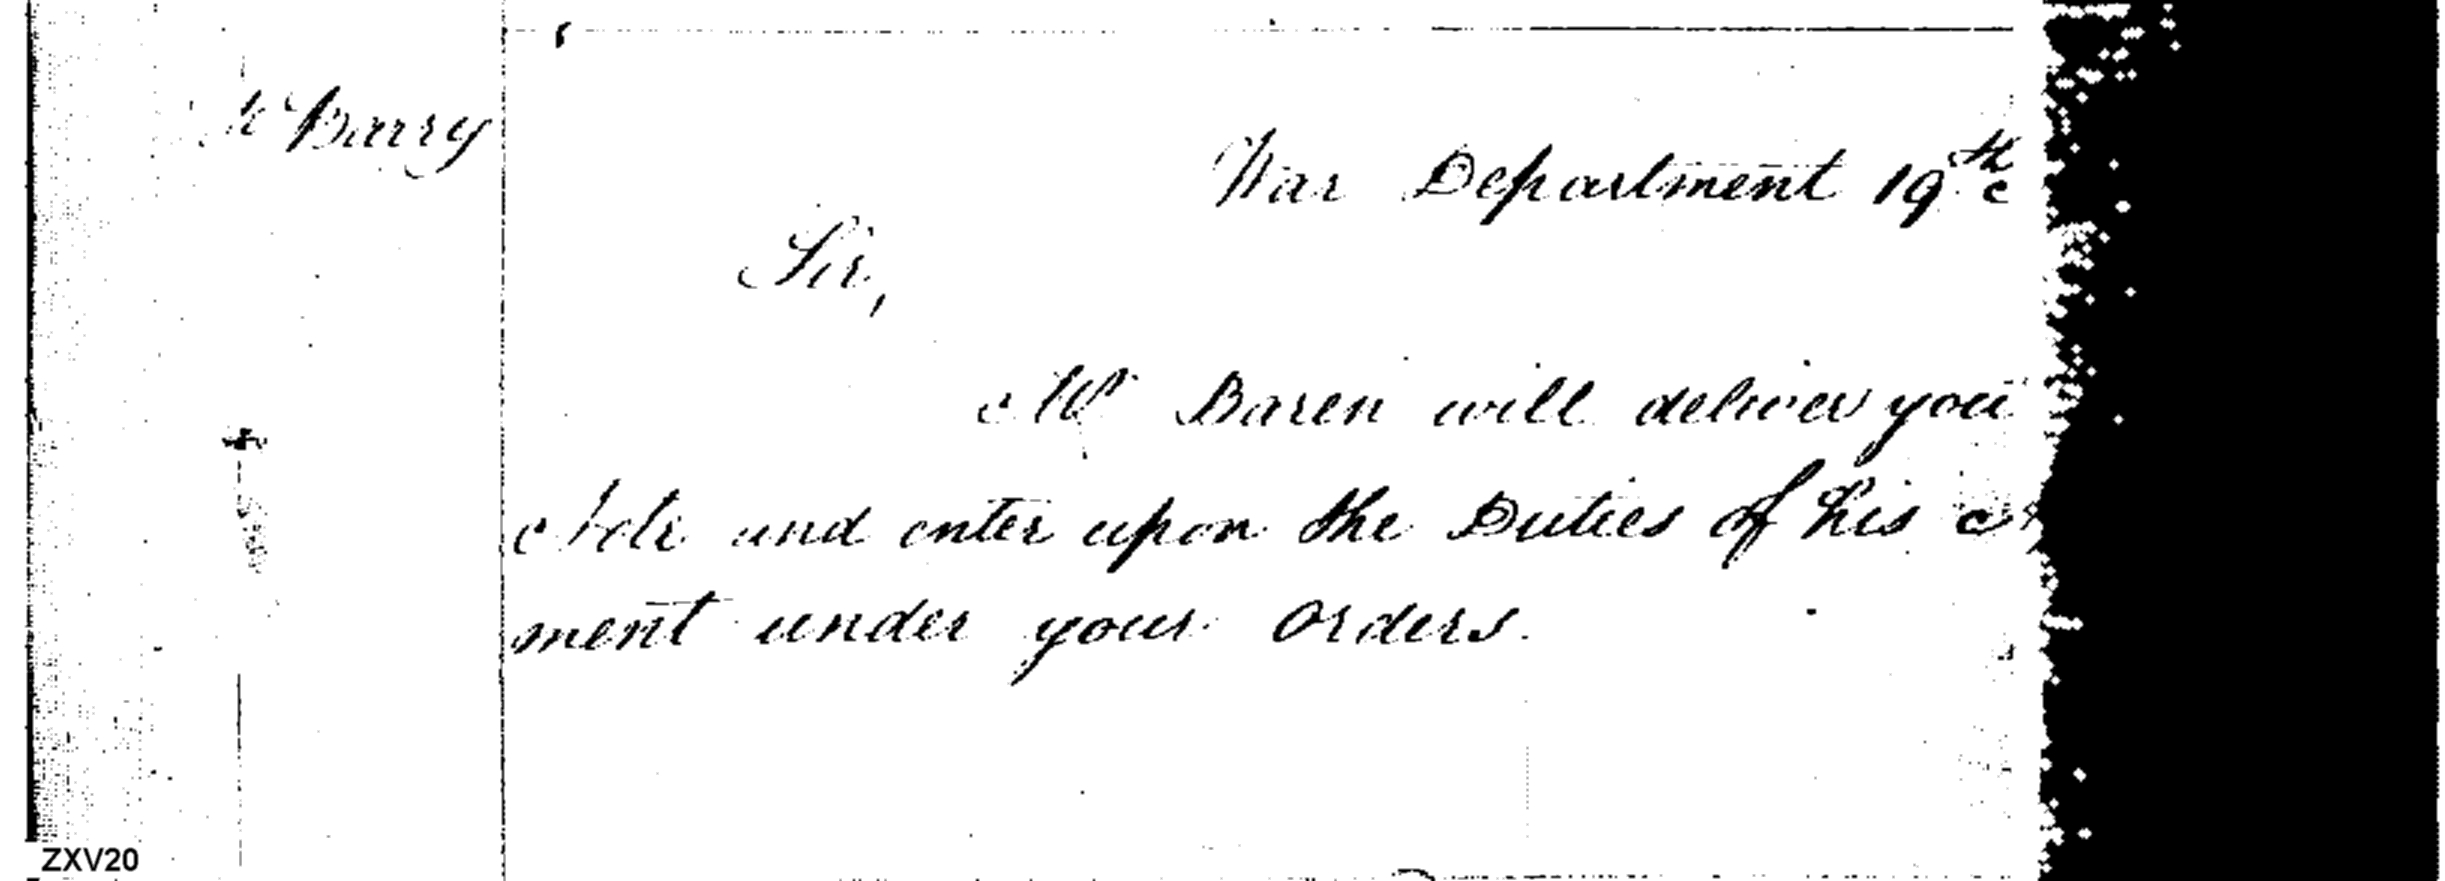 Barry
War Department 19th
Sir,
Mr Baren will deliver you
Note and enter upon the Duties of his
ment under your Orders.
ZXV20